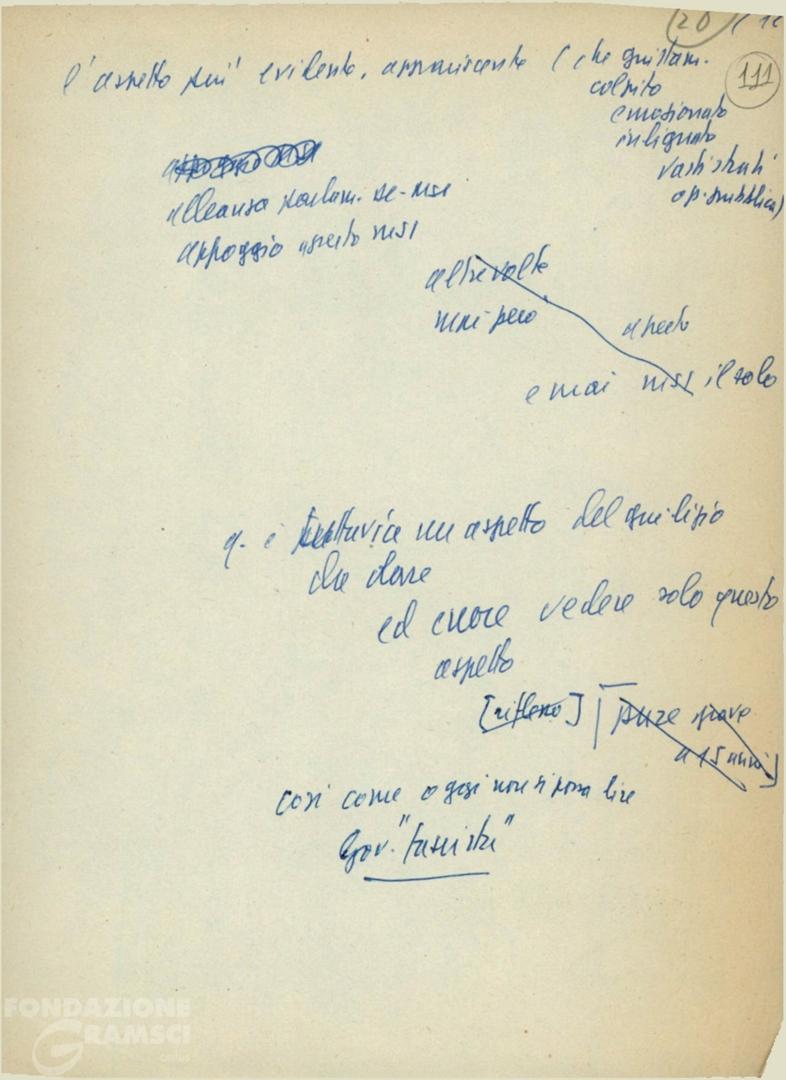 20
111
l'aspetto più evidente, appariscente (che giustam.
colpito
emozionato
indignato
vasti strati
op. pubblica)
alleanza parlam. DC-MSI
appoggio aperto MSI
altre volte
mai però
aperto
e mai MSI il solo
q. è tuttavia un aspetto del
che dare
ed errore vedere solo questo
aspetto
[riflesso] [pure grave
a 15 anni]
così come oggi non si possa dire
Gov. "fascista"
FONDAZIONE
GRAMSCI
onlus